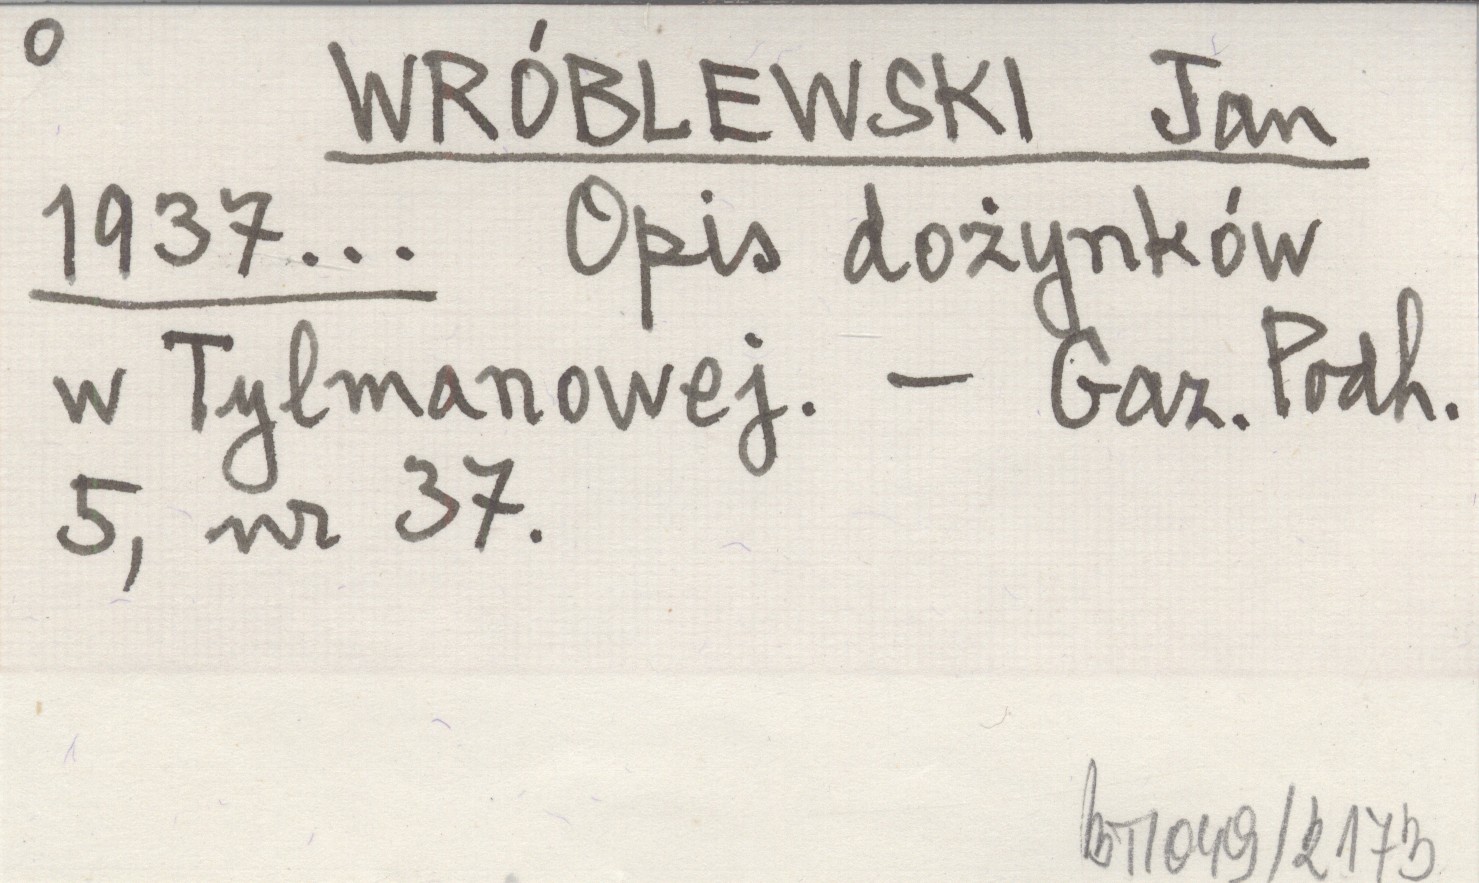 o
WRÓBLEWSKI Jan
1937... Opis dożynków
w Tylmanowej. - Gaz. Podh.
5, nr 37.
bT/049/2173